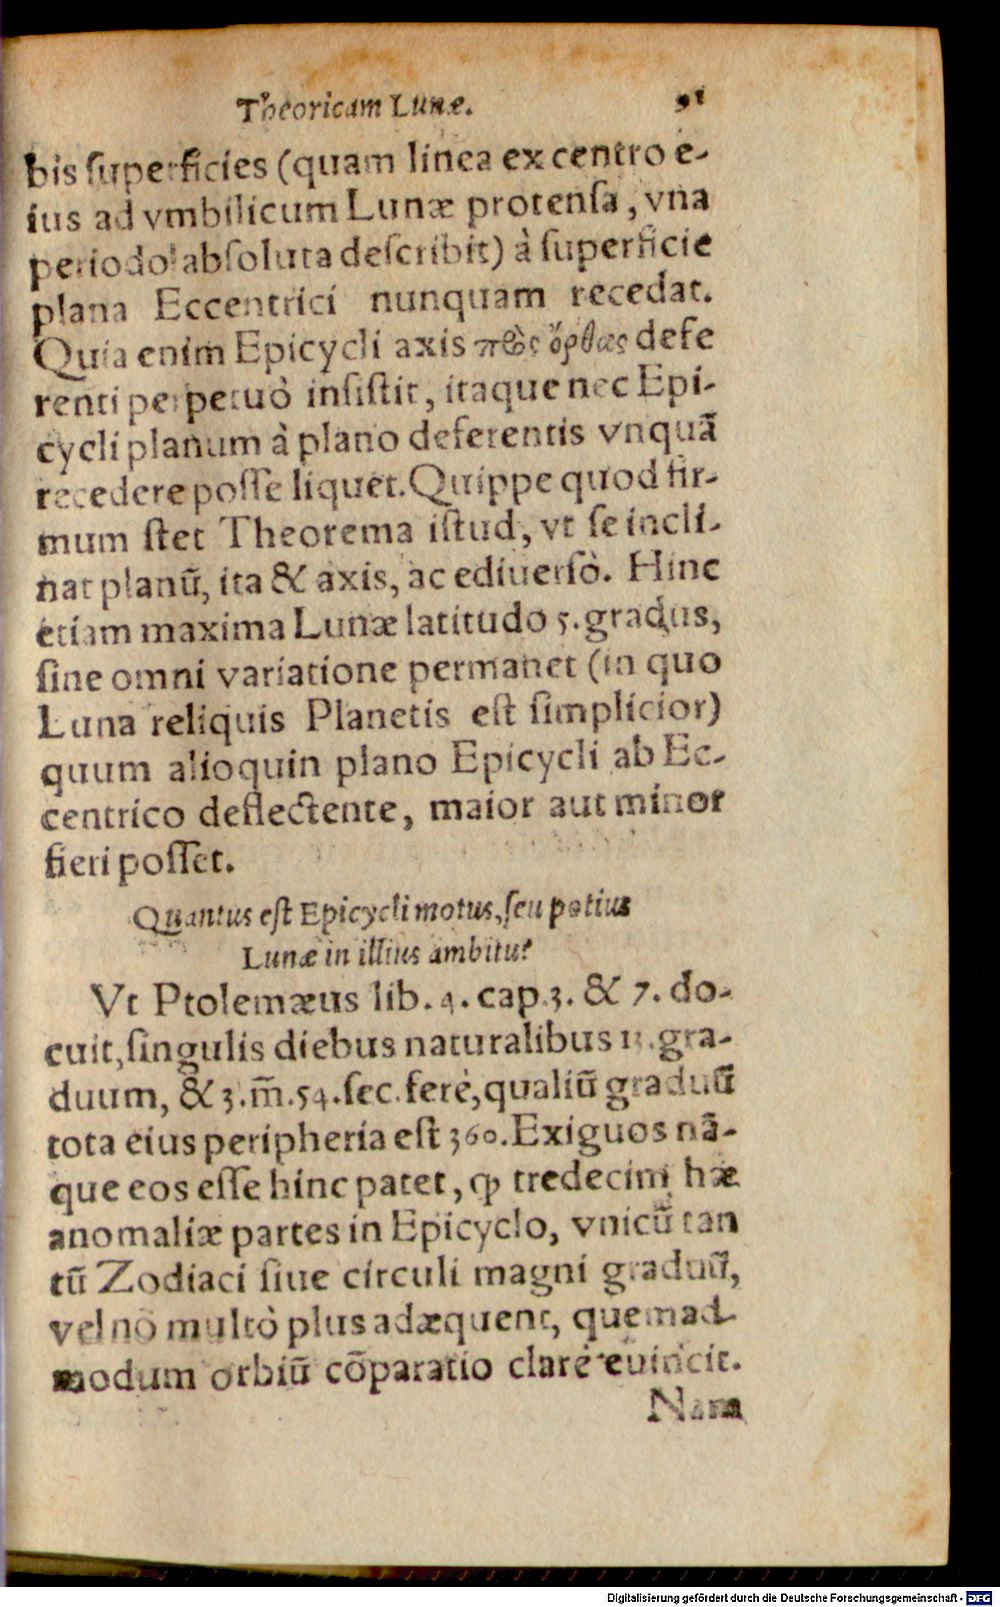 Theoricam Lunæ. 91
bis ſuperficies (quam linea ex centro e-
ius ad vmbilicum Lunæ protenſa, vna
periodo abſoluta deſcribit) à ſuperficie
plana Eccentrici nunquam recedat.
Quia enim Epicycli axis πρὸς ὄρθας defe
renti perpetuò inſiſtit, itaque nec Epi-
cycli planum à plano deferentis vnquā
recedere poſſe liquet. Quippe quod fir-
mum ſtet Theorema iſtud, vt ſe incli-
nat planū, ita & axis, ac ediuerſò. Hinc
etiam maxima Lunæ latitudo 5. gradus,
ſine omni variatione permanet (in quo
Luna reliquis Planetis eſt ſimplicior)
quum alioquin plano Epicycli ab Ec-
centrico deflectente, maior aut minor
fieri poſſet.
Quantus eſt Epicycli motus, ſeu potius
Lunæ in illius ambitu?
Vt Ptolemæus lib. 4. cap. 3. & 7. do-
cuit, ſingulis diebus naturalibus 13. gra-
duum, & 3. m̄. 54. ſec. ferè, qualiū graduū
tota eius peripheria eſt 360. Exiguos nā-
que eos eſſe hinc patet, ꝙ tredecim hæ
anomaliæ partes in Epicyclo, vnicū tan
tū Zodiaci ſiue circuli magni graduū,
vel nō multò plus adæquent, quemad-
modum orbiū cōparatio clarè euincit.
Nam
Digitalisierung gefördert durch die Deutsche Forschungsgemeinschaft - DFG